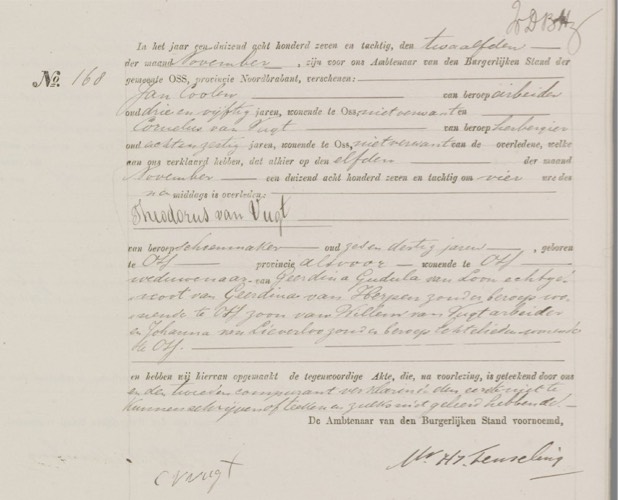 In het jaar een duizend acht honderd zeven en tachtig, den twaalfden
der maand November, zijn voor ons Ambtenaar van den Burgerlijken Stand der
No. 168
gemeente OSS, provincie Noordbrabant, verschenen:
Jan Coolen van beroep arbeider
oud drie en vijftig jaren, wonende te Oss, niet verwant en
Cornelus van Vugt van beroep herbergier
oud acht en zestig jaren, wonende te Oss, niet verwant van de overledene, welke
aan ons verklaard hebben, dat alhier op den elfden der maand
November een duizend acht honderd zeven en tachtig om vier uren des
na middags is overleden:
Theodorus van Vugt
van beroep schoenmaker oud zes en dertig jaren, geboren
te Oss provincie alsvoor wonende te Oss
weduwenaar van Geerdina Gudula van Loon echtge
noot van Geerdina van Herpen zonder beroep wo
nende te Oss zoon van Willem van Vugt arbeider
en Johanna van Lieverloo zonder beroep Echtelieden wonende
te Oss.
en hebben wij hiervan opgemaakt de tegenwoordige Akte, die, na voorlezing, is geteekend door ons
en den tweeden comparant verklarende den eerste niet te
kunnen schrijven of teeken en zulks niet geleerd hebbende
De Ambtenaar van den Burgerlijken Stand voornoemd,
C v Vugt